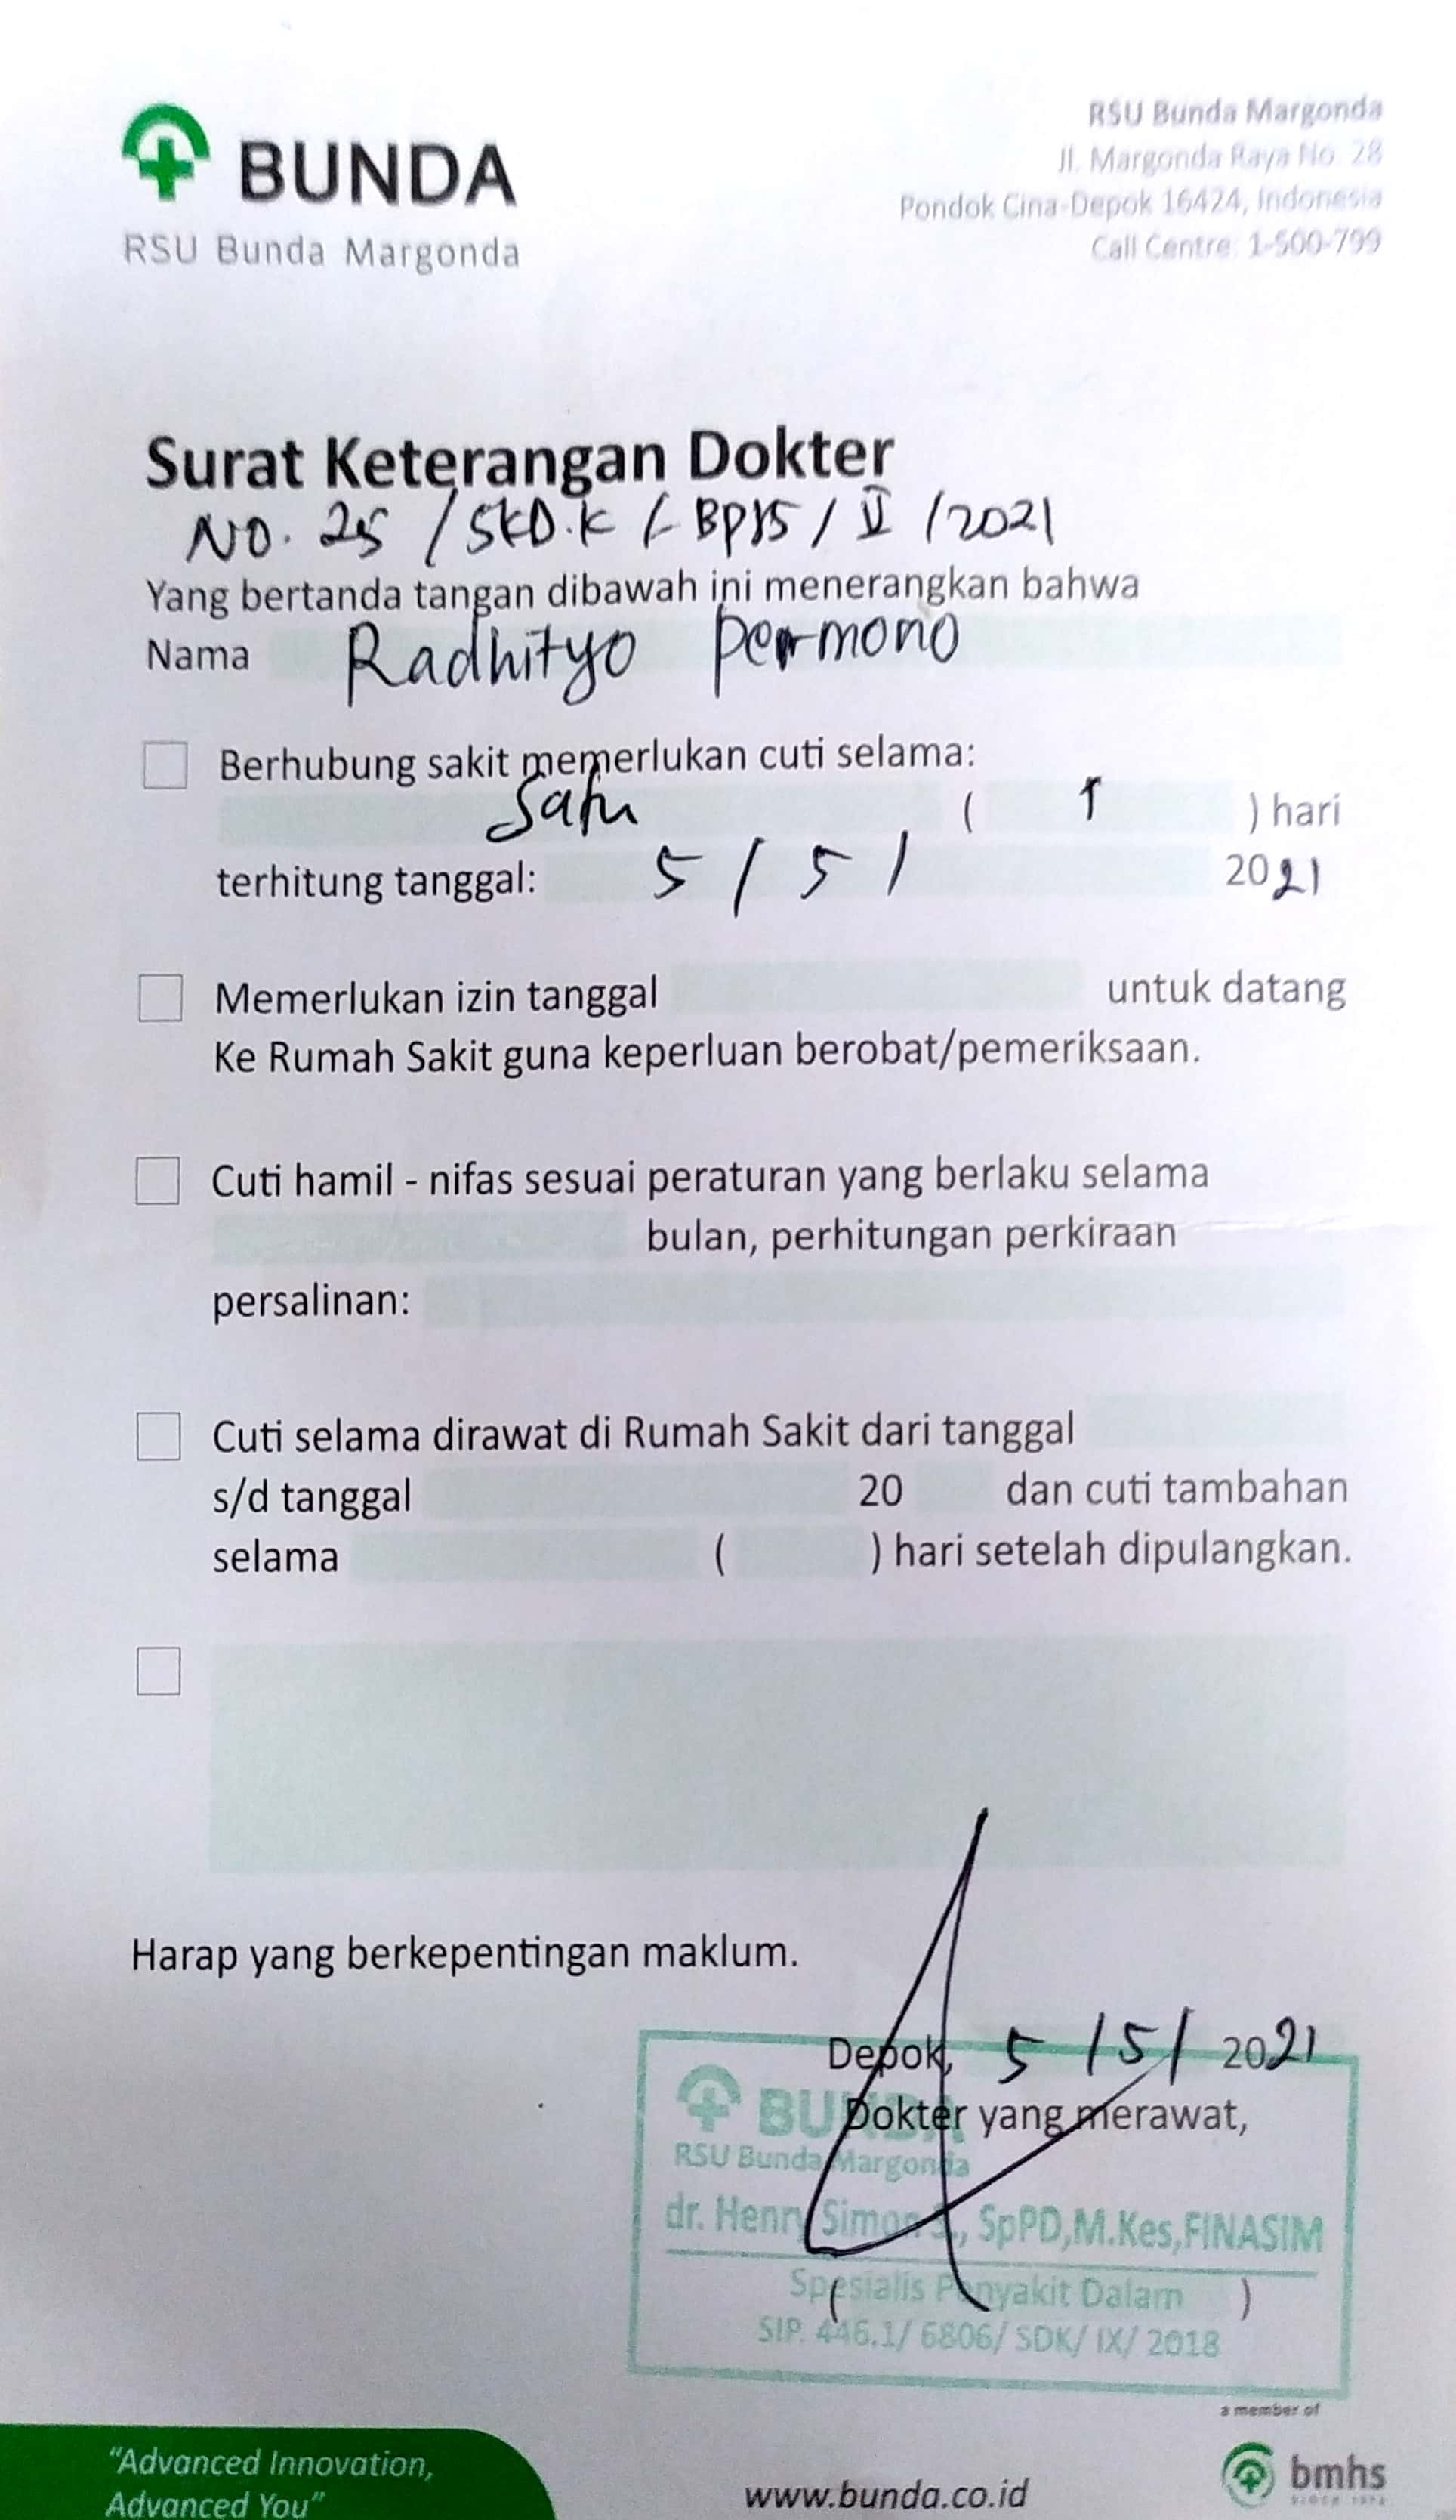 BUNDA
RSU Bunda Margonda
RSU Bunda Margonda
Jl. Margonda Raya No. 28
Pondok Cina-Depok 16424, Indonesia
Call Centre: 1-500-799
Surat Keterangan Dokter
NO. 25 / SKD.K / BPJS / V / 2021
Yang bertanda tangan dibawah ini menerangkan bahwa
Nama Radhityo Permono
Berhubung sakit memerlukan cuti selama:
Satu ( 1 ) hari
terhitung tanggal: 5 / 5 / 2021
Memerlukan izin tanggal untuk datang
Ke Rumah Sakit guna keperluan berobat/pemeriksaan.
Cuti hamil - nifas sesuai peraturan yang berlaku selama
bulan, perhitungan perkiraan
persalinan:
Cuti selama dirawat di Rumah Sakit dari tanggal
s/d tanggal 20 dan cuti tambahan
selama ( ) hari setelah dipulangkan.
Harap yang berkepentingan maklum.
Depok, 5 / 5 / 2021
Dokter yang merawat,
BUNDA
RSU Bunda Margonda
dr. Henry Simon S., SpPD,M.Kes,FINASIM
Spesialis Penyakit Dalam
( )
SIP. 446.1/ 6806/ SDK/ IX/ 2018
a member of
bmhs
"Advanced Innovation,
Advanced You"
www.bunda.co.id